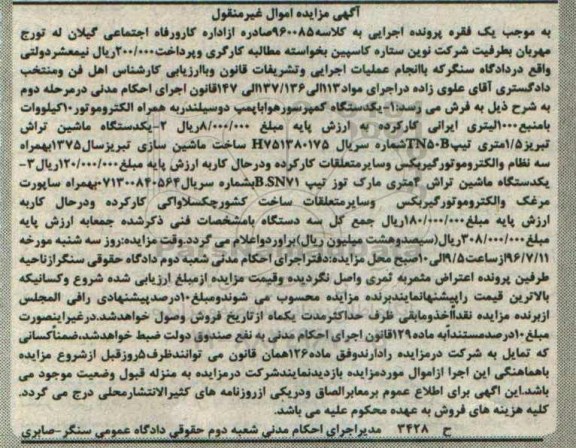 آگهی مزایده اموال غیرمنقول
به موجب یک فقره پرونده اجرایی به کلاسه۹۶۰۰۸۵صادره ازاداره کارورفاه اجتماعی گیلان له تورج
مهربان بطرفیت شرکت نوین ستاره کاسپین بخواسته مطالبه کارگری وپرداخت۲۰۰/۰۰۰ریال نیمعشردولتی
واقع دردادگاه سنگرکه باانجام عملیات اجرایی وتشریفات قانون وباارزیابی کارشناس اهل فن ومنتخب
دادگستری آقای علوی زاده دراجرای مواد۱۱۳الی۱۳۷/۱۳۶الی ۱۴۷قانون اجرای احکام مدنی درمرحله دوم
به شرح ذیل به فرش می رسد:۱-یکدستگاه کمپرسورهواباپمپ دوسیلندربه همراه الکتروموتور۱۰کیلووات
بامنبع۱۰۰۰لیتری ایرانی کارکرده به ارزش پایه مبلغ ۸/۰۰۰/۰۰۰ریال ۲-یکدستگاه ماشین تراش
تبریز۱/۵متری تیپTN۵۰Bشماره سریال H۷۵۱۳۸۰۱۷۵ ساخت ماشین سازی تبریزسال۱۳۷۵بهمراه
سه نظام والکتروموتورگیربکس وسایرمتعلقات کارکرده ودرحال کاربه ارزش پایه مبلغ۱۲۰/۰۰۰/۰۰۰ریال۳-
یکدستگاه ماشین تراش ۳متری مارک توز تیپ B.SN۷۱بشماره سریال۰۷۱۳۰۰۸۴۰۵۶۴بهمراه ساپورت
مرغک والکتروموتورگیربکس وسایرمتعلقات ساخت کشورچکسلاواکی کارکرده ودرحال کاربه
ارزش پایه مبلغ۱۸۰/۰۰۰/۰۰۰ریال جمع کل سه دستگاه بامشخصات فنی ذکرشده جمعابه ارزش پایه
مبلغ۳۰۸/۰۰۰/۰۰۰ریال(سیصدوهشت میلیون ریال)برآوردواعلام می گردد.وقت مزایده:روز سه شنبه مورخه
۹۶/۷/۱۱ازساعت۹/۵الی۱۰صبح محل مزایده:دفتراجرای احکام مدنی شعبه دوم دادگاه حقوقی سنگرازناحیه
طرفین پرونده اعتراض مثمربه ثمری واصل نگردیده وقیمت مزایده ازمبلغ ارزیابی شده شروع وکسانیکه
بالاترین قیمت راپیشنهادنمایندبرنده مزایده محسوب می شوندومبلغ۱۰درصدپیشنهادی رافی المجلس
ازبرنده مزایده نقداًاخذومابقی ظرف حداکثرمدت یکماه ازتاریخ فروش وصول خواهدشد.درغیراینصورت
مبلغ۱۰درصدمستنداًبه ماده۱۲۹قانون اجرای احکام مدنی به نفع صندوق دولت ضبط خواهدشد،ضمناًکسانی
که تمایل به شرکت درمزایده رادارندوفق ماده۱۲۶همان قانون می توانندظرف۵روزقبل ازشروع مزایده
باهماهنگی این اجرا ازاموال موردمزایده بازدیدنمایندشرکت درمزایده به منزله قبول وضعیت موجود می
باشد.این آگهی برای اطلاع عموم برمعابرالصاق ودریکی ازروزنامه های کثیرالانتشارمحلی درج می گردد.
کلیه هزینه های فروش به عهده محکوم علیه می باشد.
ح ۳۴۲۸ مدیراجرای احکام مدنی شعبه دوم حقوقی دادگاه عمومی سنگر-صابری